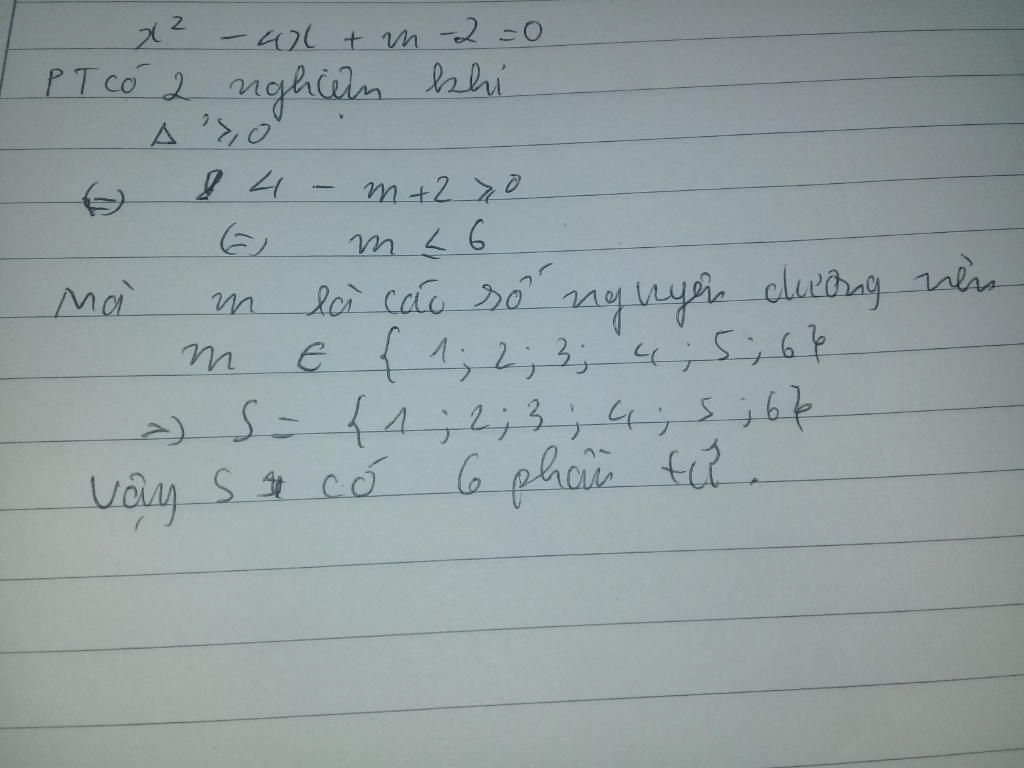 x² - 4x + m - 2 = 0
PT có 2 nghiệm khi
Δ' ≥ 0
(=) 4 - m + 2 ≥ 0
(=) m ≤ 6
Mà m là các số nguyên dương nên
m ∈ { 1 ; 2 ; 3 ; 4 ; 5 ; 6 }
=) S = { 1 ; 2 ; 3 ; 4 ; 5 ; 6 }
Vậy S có 6 phần tử .